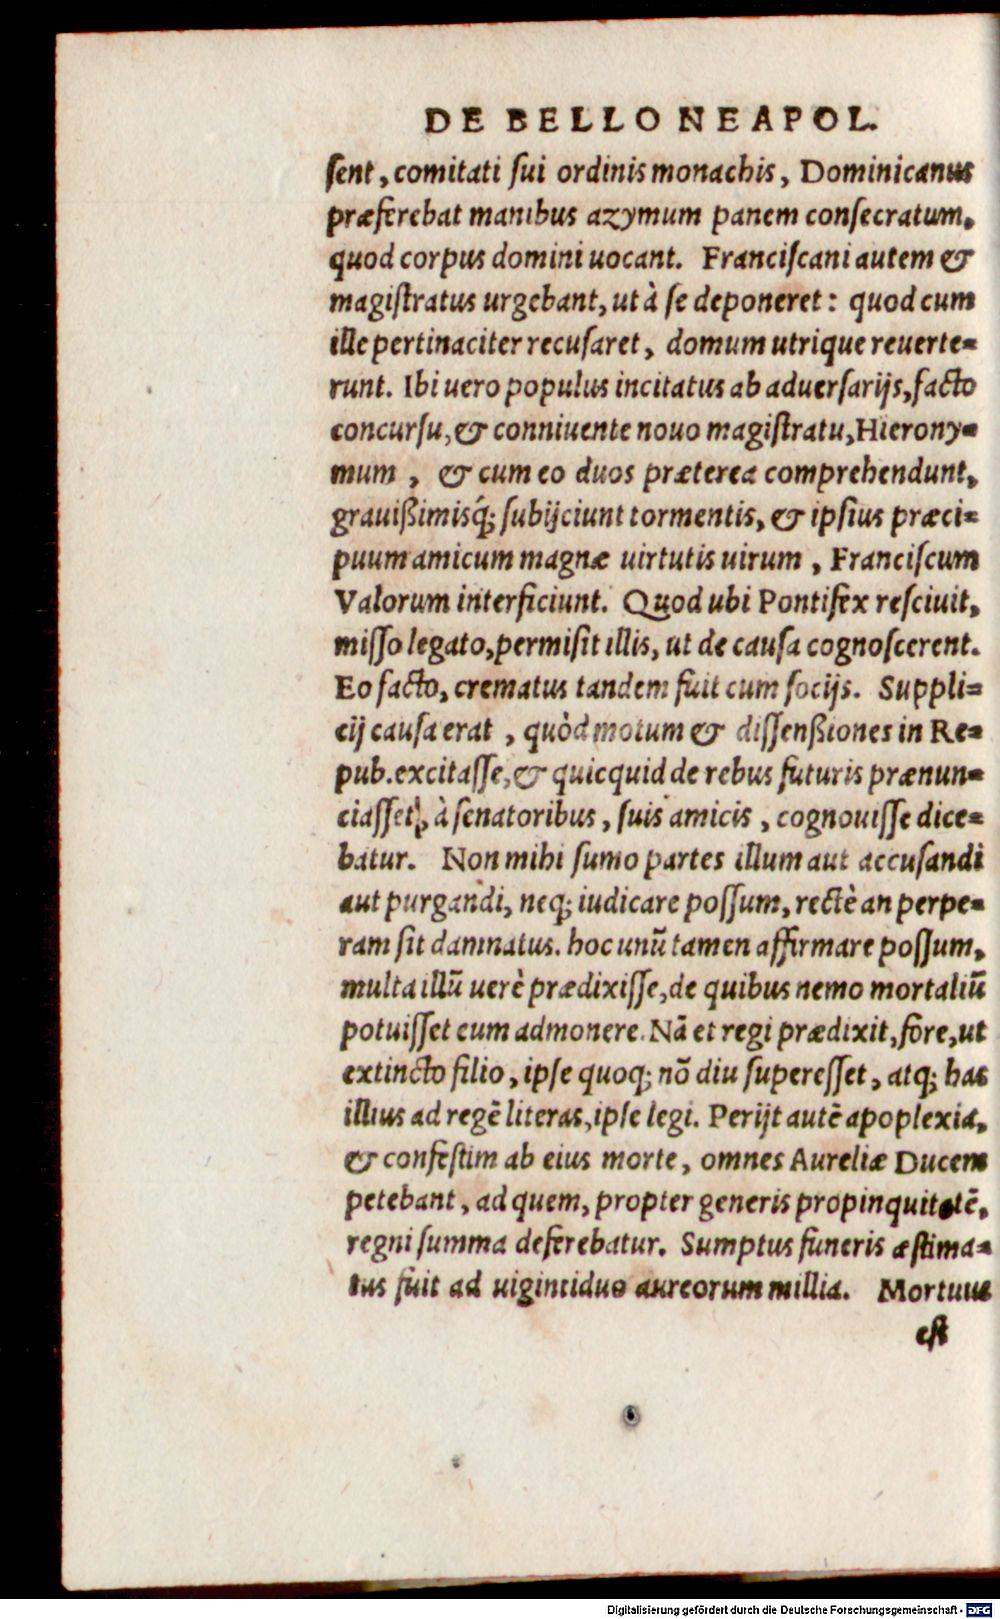 DE BELLO NEAPOL.
sent, comitati sui ordinis monachis, Dominicanus
præferebat manibus azymum panem consecratum,
quod corpus domini uocant. Franciscani autem &
magistratus urgebant, ut à se deponeret: quod cum
ille pertinaciter recusaret, domum utrique reuerte=
runt. Ibi uero populus incitatus ab aduersarijs, facto
concursu, & conniuente nouo magistratu, Hierony=
mum, & cum eo duos præterea comprehendunt,
grauißimisq́; subijciunt tormentis, & ipsius præci=
puum amicum magnæ uirtutis uirum, Franciscum
Valorum interficiunt. Quod ubi Pontifex resciuit,
misso legato, permisit illis, ut de causa cognoscerent.
Eo facto, crematus tandem fuit cum socijs. Suppli=
cij causa erat, quòd motum & dissenßiones in Re=
pub. excitasse, & quicquid de rebus futuris prænun=
ciasset, à senatoribus, suis amicis, cognouisse dice=
batur. Non mihi sumo partes illum aut accusandi
aut purgandi, neq; iudicare possum, rectè an perpe=
ram sit damnatus. hoc unū tamen affirmare possum,
multa illū uerè prædixisse, de quibus nemo mortaliū
potuisset eum admonere. Nā et regi prædixit, fore, ut
extincto filio, ipse quoq; nō diu superesset, atq; has
illius ad regē literas, ipse legi. Perijt autē apoplexia,
& confestim ab eius morte, omnes Aureliæ Ducem
petebant, ad quem, propter generis propinquitatē,
regni summa deferebatur. Sumptus funeris æstima=
tus fuit ad uigintiduo aureorum millia. Mortuus
est
Digitalisierung gefördert durch die Deutsche Forschungsgemeinschaft - DFG